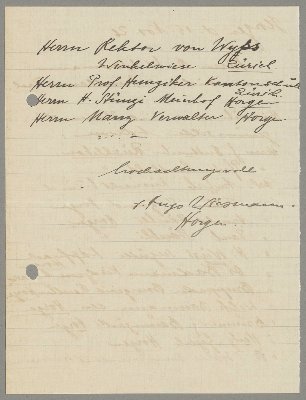 Herrn Rektor von Wyss
Winkelwiese Zürich
Herrn Prof. Hunziker Kantonschule
Zürich
Herrn H. Stünzi Meinhof Horgen
Herrn Verwalter Horgen
Hochachtungsvoll
Hugo
Horgen.